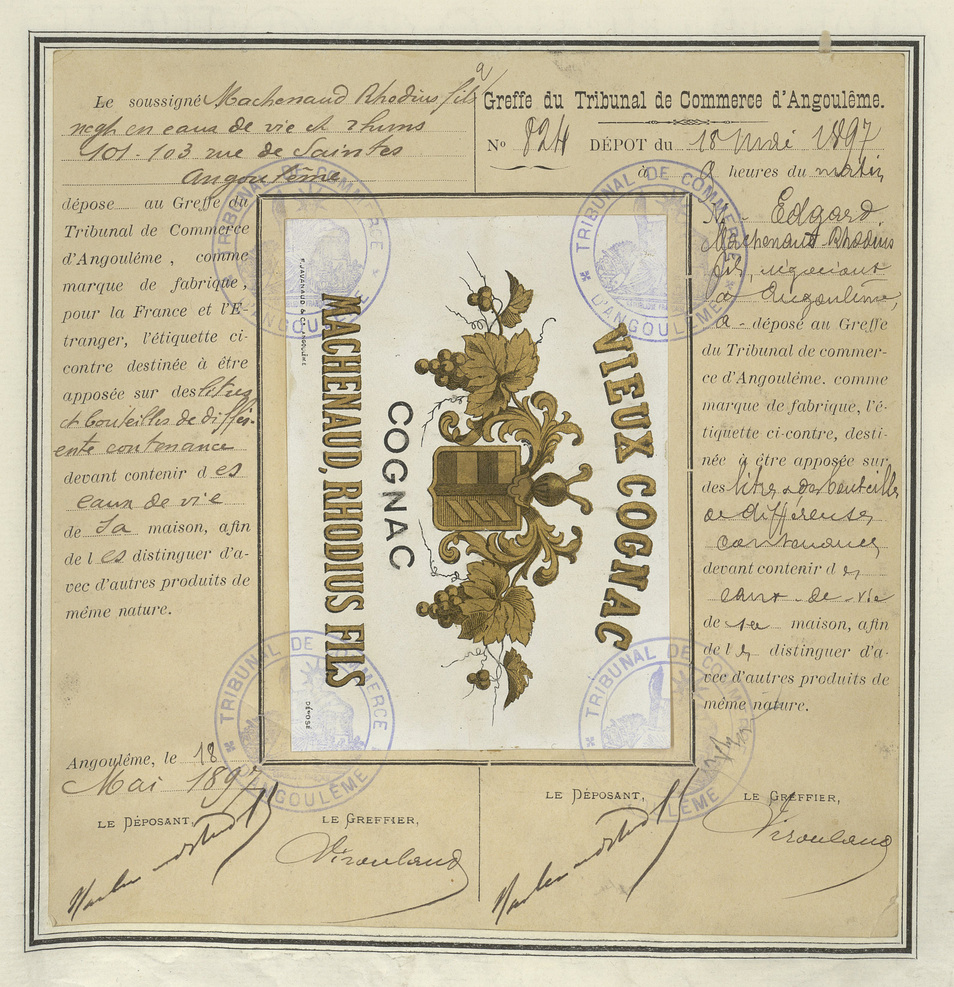 Le soussigné Machenaud Rhodius fils
negt en eaux de vie et rhums
101-103 rue de Saintes
Angoulême
dépose au Greffe du
Tribunal de Commerce
d'Angoulême, comme
marque de fabrique,
pour la France et l'É-
tranger, l'étiquette ci-
contre destinée à être
apposée sur des litres
et bouteilles de différ-
ente contenance
devant contenir des
eaux de vie
de sa maison, afin
de les distinguer d'a-
vec d'autres produits de
même nature.
Angoulême, le 18
Mai 1897
LE DÉPOSANT,
LE GREFFIER,
Virouland
VIEUX COGNAC
COGNAC
MACHENAUD, RHODIUS FILS
DÉPOSÉ
Greffe du Tribunal de Commerce d'Angoulême.
No 824 DÉPOT du 18 Mai 1897
à 9 heures du matin
M. Edgard
Machenaud Rhodius
fils, négociant
à Angoulême,
a déposé au Greffe
du Tribunal de commer-
ce d'Angoulême. comme
marque de fabrique, l'é-
tiquette ci-contre, desti-
née à être apposée sur
des litres & des bouteilles
de différentes
contenances
devant contenir des
eaux-de-vie
de sa maison, afin
de les distinguer d'a-
vec d'autres produits de
même nature.
LE DÉPOSANT,
LE GREFFIER,
Virouland
TRIBUNAL DE COMMERCE
D'ANGOULÊME
TRIBUNAL DE COMMERCE
D'ANGOULÊME
TRIBUNAL DE COMMERCE
D'ANGOULÊME
TRIBUNAL DE COMMERCE